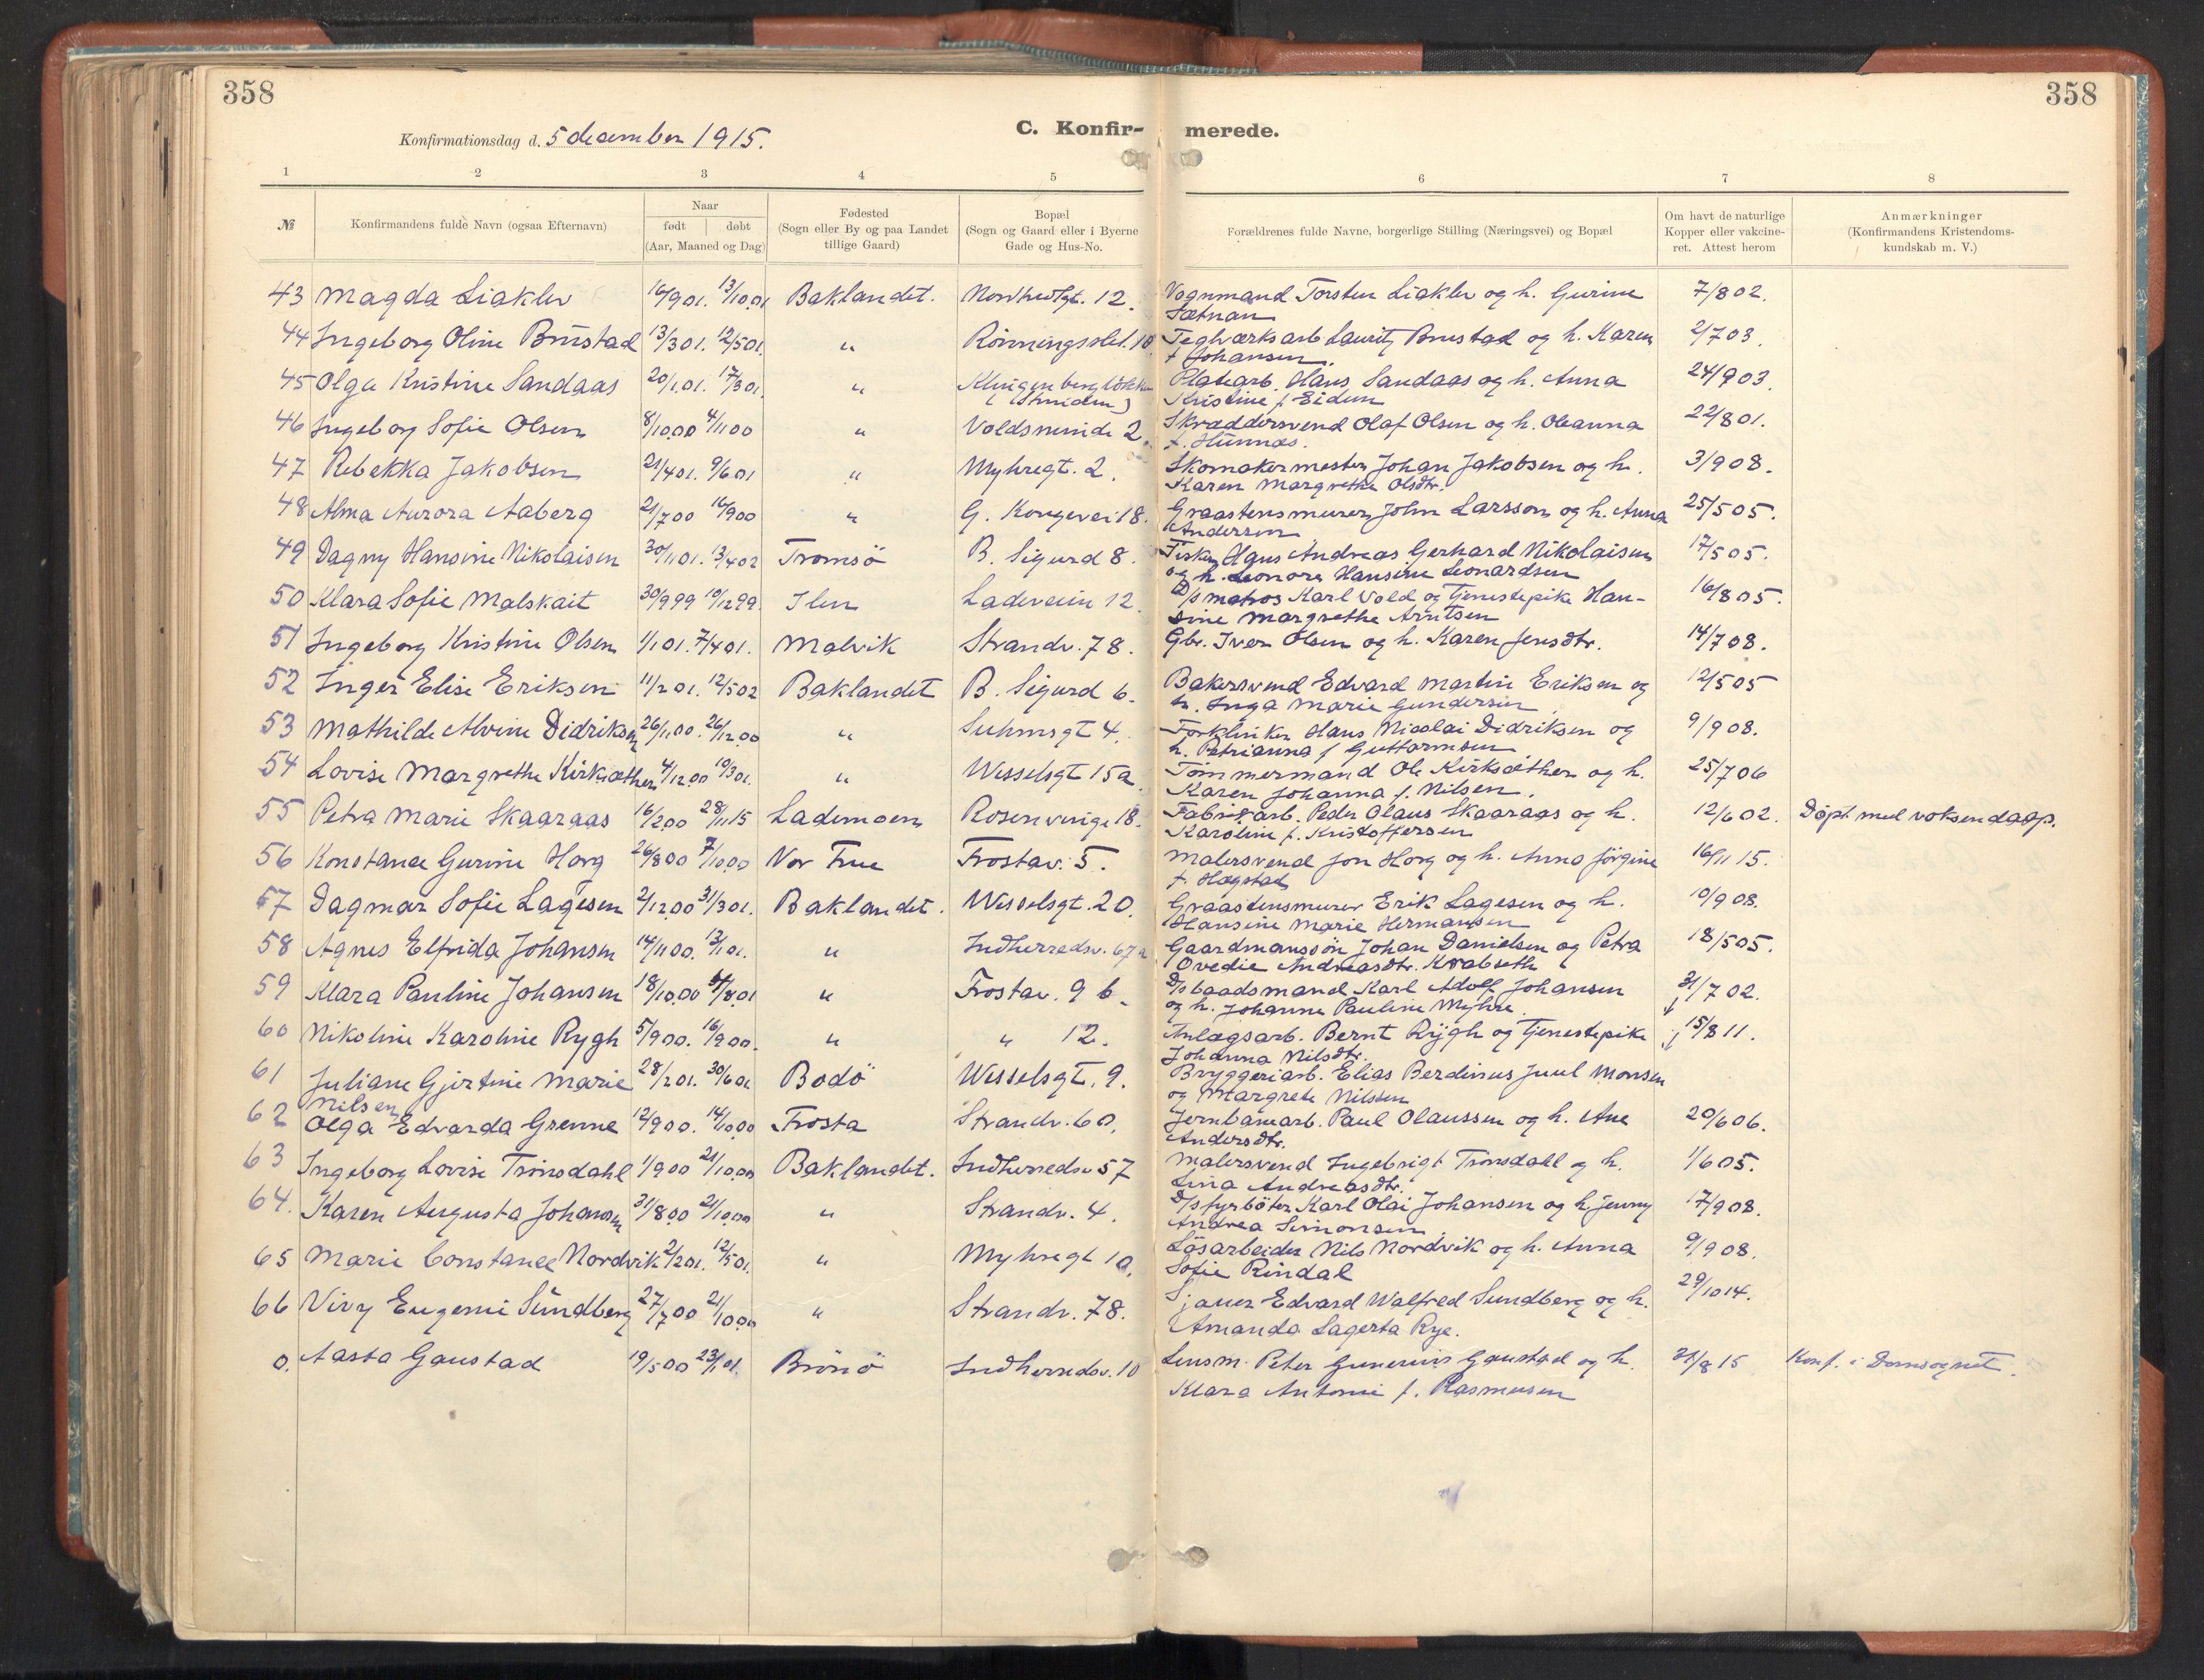 358
358
Konfirmationsdag d. 5 desember 1915.
C. Konfir-
merede.
1 2 3 4 5 6 7 8
№ Konfirmandens fulde Navn (ogsaa Efternavn)
Naar
født døbt
(Aar, Maaned og Dag)
Fødested
(Sogn eller By og paa Landet
tillige Gaard)
Bopæl
(Sogn og Gaard eller i Byerne
Gade og Hus-No.
Forældrenes fulde Navne, borgerlige Stilling (Næringsvei) og Bopæl
Om havt de naturlige
Kopper eller vakcine-
ret. Attest herom
Anmærkninger
(Konfirmandens Kristendoms-
kundskab m. V.)
43 Magda Liaklev 16/901. 13/1001 Baklandet. 12. Vognmand Torsten Liaklev og h. Gurine 7/802.
Sætnan
44 Ingeborg Oline Brustad 13/301. 12/501. " Rönningsslet. 10. Teglværksarb Lauritz Brustad og h. Karen 2/703.
f Johansen.
45 Olga Kristine Sandaas 20/101. 17/301. " Klingenberglökken Platearb. Hans Sandaas og h. Anna 24/903.
(Strinden) Kristine f. Eidem
46 Ingeborg Sofie Olsen 8/1000 4/1100 " Voldsminde 2. Skræddersvend Olaf Olsen og h. Oleanna 22/801.
f. Hünnæs.
47 Rebekka Jakobsen 21/401. 9/601 " Myhregt. 2. Skomakermester Johan Jakobsen og h. 3/908.
Karen Margrethe Olsdtr.
48 Alma Aurora Aaberg 21/700 16/900 " G. Kongevei 18. Graastensmurer John Larsson og h. Anna 25/505.
Anderson
49 Dagny Hansine Nikolaisen 30/1101. 13/402 Tromsö B. Sigurd 8. Fisker Hans Andreas Gerhard Nikolaisen 17/505.
og h. Leonora Hansine Leonardsen
50 Klara Sofie Malskait 30/999 10/1299. Ilen Ladeveien 12. D/s matros Karl Vold og tjenestepike Han- 16/805.
sine Margrethe Arntsen
51 Ingeborg Kristine Olsen 1/101. 7/401. Malvik Strandv. 78. Gbr. Iver Olsen og h. Karen Jensdtr. 14/708.
52 Inger Elise Eriksen 11/201. 12/502 Baklandet B. Sigurd 6. Bakersvend Edvard Martin Eriksen og 12/505
h. Inga Marie Gundersen
53 Mathilde Alvine Didriksen 26/1100. 26/1200 " Suhmsgt 4. Forklinker Hans Nicolai Didriksen og 9/908.
h. Petrianna f Guttormsen
54 Lovise Margrethe Kirksæther 4/1200 10/301. " Wesselsgt 15a. Tömmermand Ole Kirksæther og h. 25/706
Karen Johanna f. Nilsen.
55 Petra Marie Skaaraas 16/200 28/1115 Lademoen Rosenvinge 18. Fabrikarb. Peder Olaus Skaaraas og h. 12/602. Döpt med voksendaap.
Karoline f. Kristoffersen
56 Konstance Gurine Horg 26/800 7/1000 Vor Frue Frostav. 5. Malersvend Jon Horg og h. Anna Jörgine 16/1115.
f. Hogstad
57 Dagmar Sofie Lagesen 2/1200 31/301. Baklandet. Wesselsgt. 20. Graastensmurer Erik Lagesen og h. 10/908.
Hansine Marie Hermansen
58 Agnes Elfrida Johansen 14/1100. 13/101. " Indherredsv. 67a Gaardmanssön Johan Danielsen og Petra 18/505.
Ovedie Andreasdtr. Krabseth
59 Klara Pauline Johansen 18/1000 /801 " Frostav. 9 b. D/s baadsmand Karl Adolf Johansen 31/702.
og h. Johanne Pauline Myhre.
60 Nikoline Karoline Rygh 5/900. 16/900. " " 12. Anlægsarb. Bernt Rygh og tjenestepike 15/811.
Johanna Nilsdtr.
61 Juliane Gjertine Marie 28/201. 30/601 Bodö Wesselsgt. 9. Bryggeriarb. Elias Berdinus Juul Monsen
Nilsen og Margrete Nilssen
62 Olga Edvarda Grenne 12/900. 14/1000 Frosta Strandv. 60. Jernbanearb. Paul Olaussen og h. Ane 29/606.
Andersdtr.
63 Ingeborg Lovise Tronsdahl 1/900 21/1000 Baklandet. Indherredsv 57 Malersvend Ingebrigt Tronsdahl og h. 1/605.
Lina Andreasdtr.
64. Karen Augusta Johansen 31/800 21/1000 " Strandv. 4. D/s fyrböter Karl Olai Johansen og h. Jenny 17/908.
Andrea Simonsen
65 Marie Constance Nordvik 2/201. 12/501. " Myhregt 10. Lösarbeider Nils Nordvik og h. Anna 9/908.
Sofie Rindal
66 Vivy Eugenie Sundberg 27/700 21/1000 " Strandv. 78. Sjauer Edvard Walfred Sundberg og h. 29/1014.
Amanda Lagerta Rye.
0. Aasta Gaustad 19/500 23/101. Brönö Indherredsv. 10 Lensm. Peter Gunerius Gaustad og h. 31/815 Konf. i Domsognet.
Klara Antonie f. Rasmussen